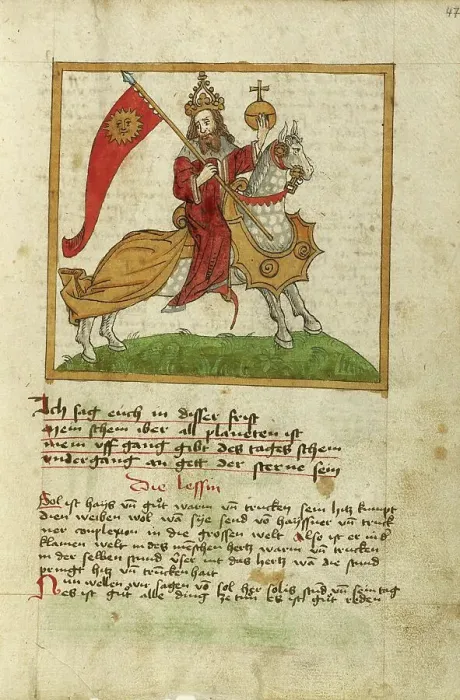 47
Ich sag euch in disser frist
mein schein iber all planeten ist
mein vff gang gibt des tages schein
vndergang an gett der sterne sein
Die lessin
Sol ist hays vn̄ gůt warm vn̄ trucken sein hitz kumpt
den weiben wol wā sÿe send vō hayssner vn̄ truck
ner conplexion in die grossen welt Also ist er in d
klainen welt in des menschen hertz warm vn̄ trucken
in der selben stund vber mit des hertz wā die stund
pringt hitz vn̄ truckenhait
Nun wellen wir sagen vō sol her solis stūd vn̄ sein tag
es ist gůt alle ding ze tun es ist gůt reden